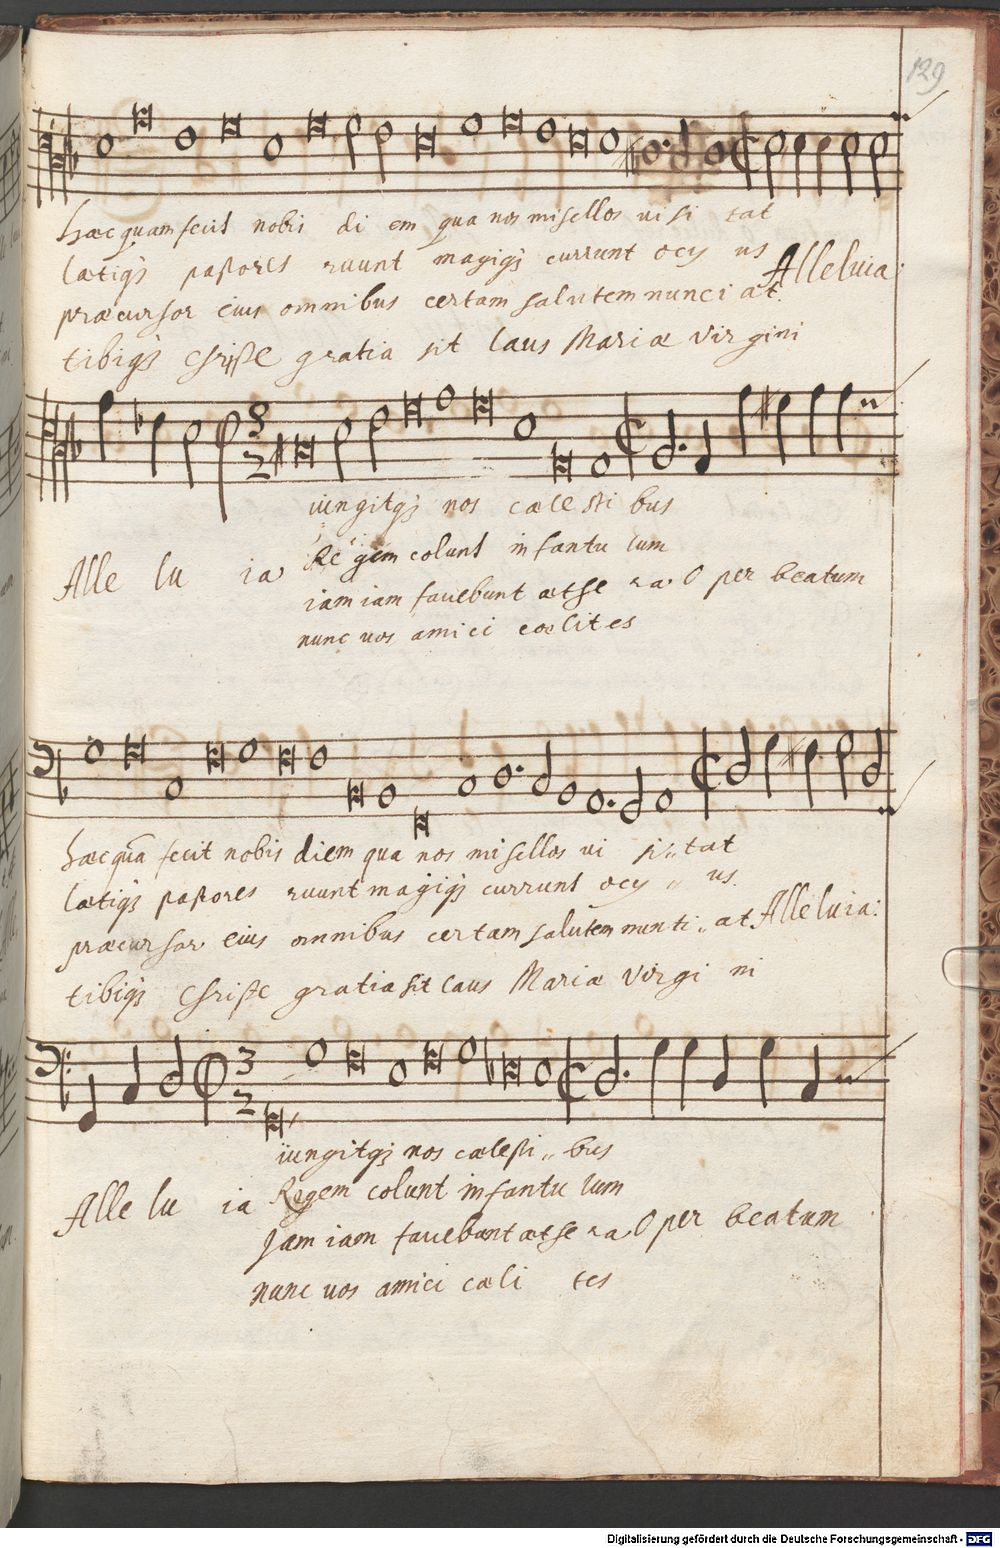 129
hæc quam fecit nobis di em qua nos misellos ui si tat
lætiq3 pastores ruunt magiq3 currunt ocy us Alleluia:
præcursor eius omnibus certam salutem nunci at.
tibiq3 Christe gratia sit laus Mariæ Virgini
3
2
iungitq3 nos cæle sti bus
Alle lu ia Re gem colunt infantu lum
iam iam fauebunt æthe ra. O per beatum
nunc uos amici cœlites
hæc quã fecit nobis diem qua nos misellos ui si„tat
lætiq3 pastores ruunt magiq3 currunt ocy „ us.
præcursor eius omnibus certam salutem nunti„at. Alleluia:
tibiq3 Christe gratia sit laus Mariæ Virgi ni
3
2
iungitq3 nos cælesti„bus
Alle lu ia Regem colunt infantu lum
Jam iam fauebunt æthe ra. O per beatum
nunc uos amici cæli tes
Digitalisierung gefördert durch die Deutsche Forschungsgemeinschaft - DFG